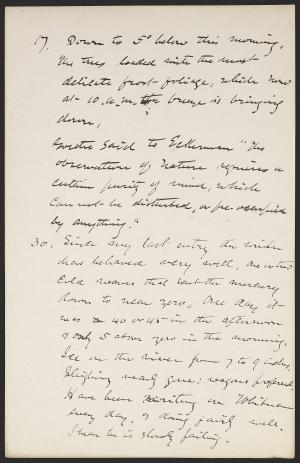 17. Down to 5° below this morning,
the trees loaded with the most
delicate frost-foliage, which now
at 10 A.M. the breeze is bringing
down.
Goethe said to Eckerman "The
observation of Nature requires a
certain purity of mind, which
cannot be disturbed, or pre-occupied
by anything."
30. Since my last entry the winter
has behaved very well, one or two
cold waves that sent the mercury
down to near zero. One day it
was 40 or 45 in the afternoon
& only 5 above zero in the morning.
Ice on the river from 7 to 9 inches,
Sleighing nearly gone; wagons preferred.
Have been writing on Whitman
every day, & doing fairly well.
I hear he is slowly failing.